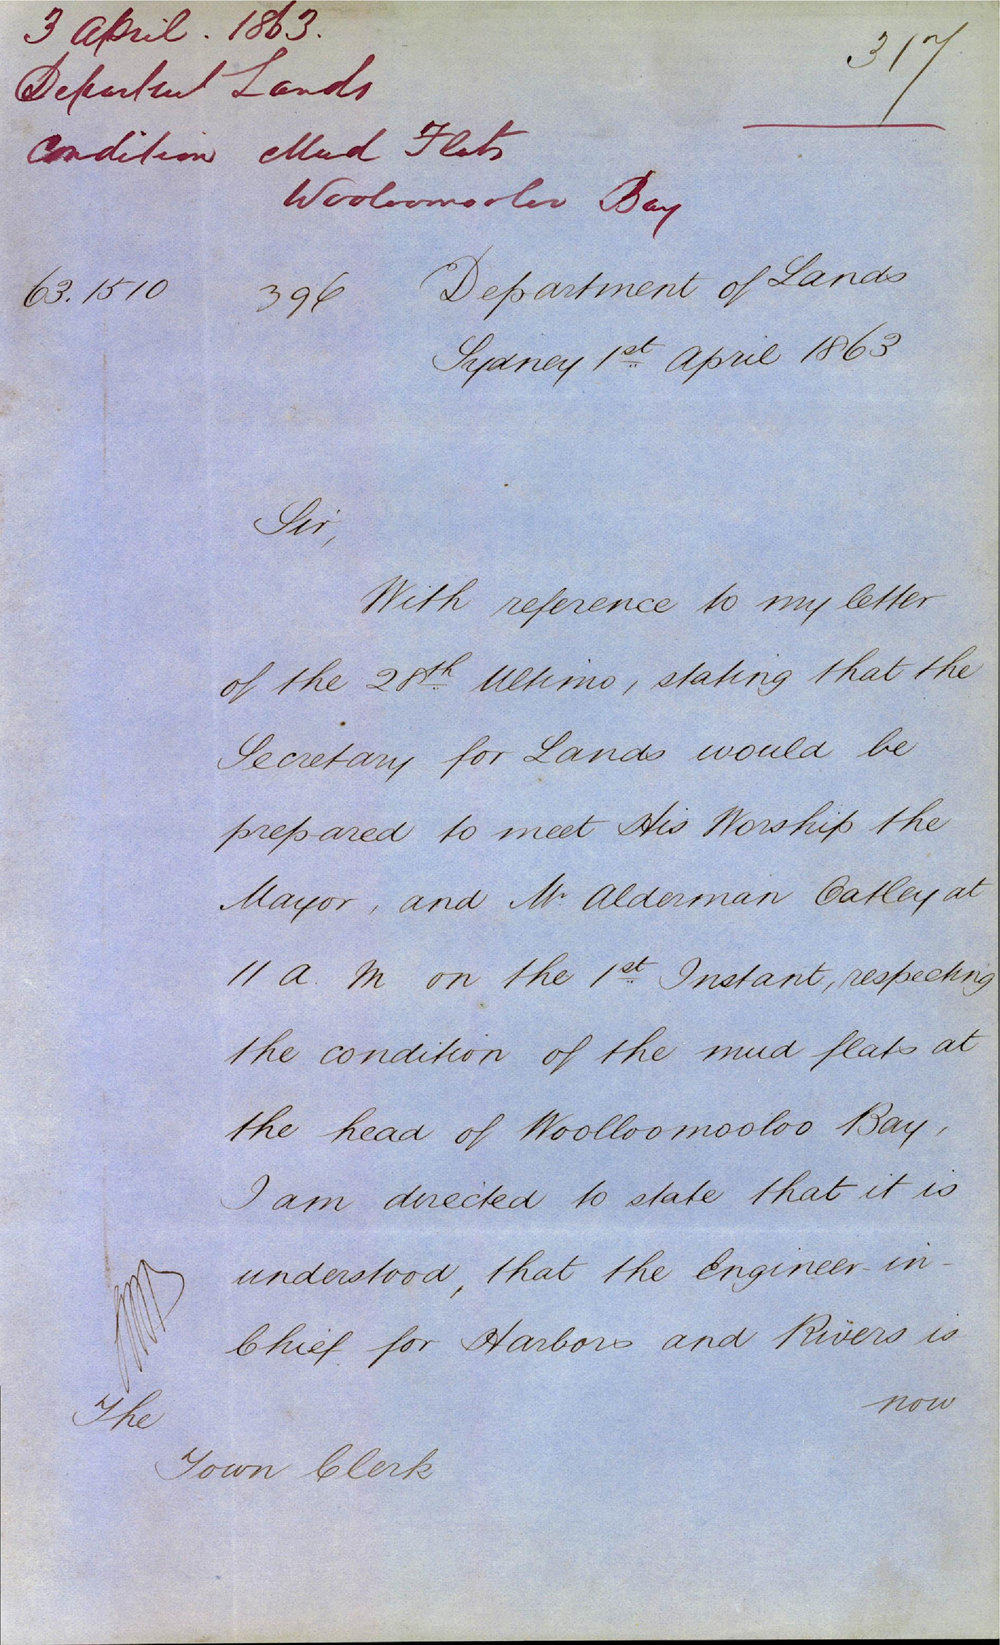 3 April . 1863.
317
Department Lands
Condition Mud Flats
Wooloomooloo Bay
63.1510 396 Department of Lands
Sydney 1st April 1863
Sir,
With reference to my letter
of the 28th Ultimo, stating that the
Secretary for Lands would be
prepared to meet His Worship the
Mayor, and Mr Alderman Oatley at
11 A. M on the 1st Instant, respecting
the condition of the mud flats at
the head of Woolloomooloo Bay,
I am directed to state that it is
understood, that the Engineer-in-
Chief for Harbors and Rivers is
now
The
Town Clerk